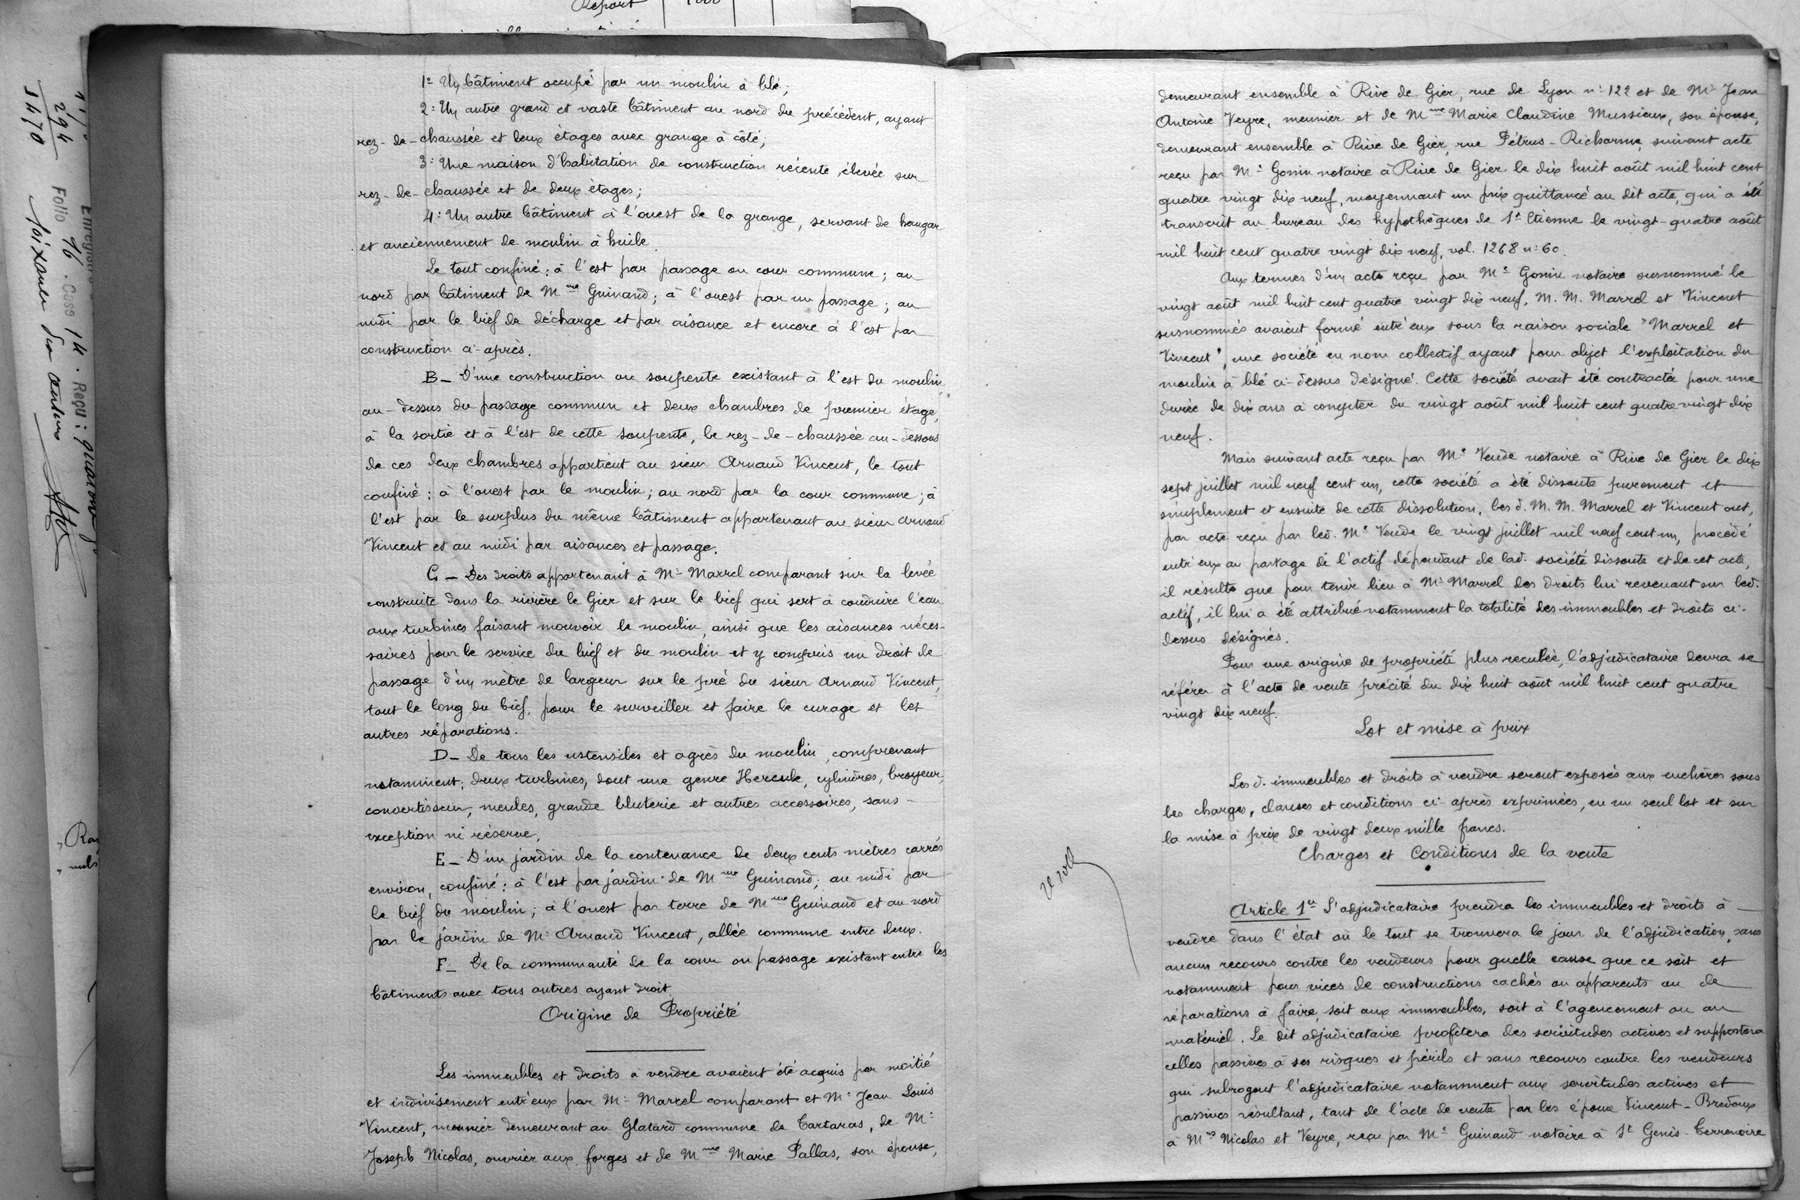 Report 1000
294 Folio 76. Case 14. Reçu :
1º Un bâtiment occupé par un moulin à blé ;
2º Un autre grand et vaste bâtiment au nord du précédent, ayant
rez-de-chaussée et deux étages avec grange à côté ;
3º Une maison d'habitation de construction récente élevée sur
rez-de-chaussée et de deux étages ;
4º Un autre bâtiment à l'ouest de la grange, servant de hangar
et anciennement de moulin à huile.
Le tout confiné : à l'est par passage ou cour commune ; au
nord par bâtiment de Mme Guinand ; à l'ouest par un passage ; au
midi par le bief de décharge et par aisance et encore à l'est par
construction ci-après.
B_ D'une construction ou soupente existant à l'est du moulin,
au-dessus du passage commun et deux chambres de premier étage,
à la sortie et à l'est de cette soupente, le rez-de-chaussée au-dessous
de ces deux chambres appartient au sieur Arnaud Vincent, le tout
confiné : à l'ouest par le moulin ; au nord par la cour commune ; à
l'est par le surplus du même bâtiment appartenant au sieur Arnaud
Vincent et au midi par aisances et passage.
C_ Des droits appartenant à Mr Marrel comparant sur la levée
construite dans la rivière le Gier et sur le bief qui sert à conduire l'eau
aux turbines faisant mouvoir le moulin, ainsi que les aisances néces-
saires pour le service du bief et du moulin et y compris un droit de
passage d'un mètre de largeur sur le pré du sieur Arnaud Vincent,
tout le long du bief, pour le surveiller et faire le curage et les
autres réparations.
D_ De tous les ustensiles et agrès du moulin, comprenant
notamment : deux turbines, dont une genre Hercule, cylindres, broyeur,
convertisseur, meules, grande bluterie et autres accessoires, sans-
exception ni réserve.
E_ D'un jardin de la contenance de deux cents mètres carrés
environ, confiné : à l'est par jardin de Mme Guinand ; au midi par
le bief du moulin ; à l'ouest par terre de Mme Guinand et au nord
par le jardin de Mr Arnaud Vincent, allée commune entre deux.
F_ De la communauté de la cour ou passage existant entre les
bâtiments avec tous autres ayant droit
Origine de Propriété
Les immeubles et droits à vendre avaient été acquis par moitié
et indivisément entr'eux par Mr Marrel comparant et Mr Jean Louis
Vincent, meunier demeurant au Glatard commune de Tartaras, de Mr
Joseph Nicolas, ouvrier aux forges et de Mme Marie Pallas, son épouse,
demeurant ensemble à Rive de Gier, rue de Lyon nº 122 et de Mr Jean
Antoine Veyre, meunier et de Mme Marie Claudine Mussieux, son épouse,
demeurant ensemble à Rive de Gier, rue Pétrus-Richarme, suivant acte
reçu par Me Gonin notaire à Rive de Gier le dix huit août mil huit cent
quatre vingt dix neuf, moyennant un prix quittancé au dit acte, qui a été
transcrit au bureau des hypothèques de St Etienne le vingt-quatre août
mil huit cent quatre vingt dix neuf, vol. 1268 nº 60.
Aux termes d'un acte reçu par Me Gonin notaire susnommé le
vingt août mil huit cent quatre vingt dix neuf, M. M. Marrel et Vincent
susnommés avaient formé entr'eux sous la raison sociale "Marrel et
Vincent", une société en nom collectif ayant pour objet l'exploitation du
moulin à blé ci-dessus désigné. Cette société avait été contractée pour une
durée de dix ans à compter du vingt août mil huit cent quatre vingt dix
neuf.
Mais suivant acte reçu par Me Veude notaire à Rive de Gier le dix
sept juillet mil neuf cent un, cette société a été dissoute purement et
simplement et ensuite de cette dissolution, les d. M. M. Marrel et Vincent ont,
par acte reçu par led. Me Veude le vingt juillet mil neuf cent un, procédé
entr'eux au partage de l'actif dépendant de lad. société dissoute et de cet acte,
il résulte que pour tenir lieu à Mr Marrel des droits lui revenant sur led.
actif, il lui a été attribué notamment la totalité des immeubles et droits ci-
dessus désignés.
Pour une origine de propriété plus reculée, l'adjudicataire devra se
référer à l'acte de vente précité du dix huit août mil huit cent quatre
vingt dix neuf.
Lot et mise à prix
Les d. immeubles et droits à vendre seront exposés aux enchères sous
les charges, clauses et conditions ci-après exprimées, en un seul lot et sur
la mise à prix de vingt deux mille francs.
Charges et Conditions de la vente
Article 1er L'adjudicataire prendra les immeubles et droits à
vendre dans l'état où le tout se trouvera le jour de l'adjudication, sans
aucun recours contre les vendeurs pour quelle cause que ce soit et
notamment pour vices de constructions cachés ou apparents ou de
réparations à faire, soit aux immeubles, soit à l'agencement ou au
matériel. Le dit adjudicataire profitera des servitudes actives et supportera
celles passives à ses risques et périls et sans recours contre les vendeurs
qui subrogent l'adjudicataire notamment aux servitudes actives et
passives résultant, tant de l'acte de vente par les époux Vincent-Bredoux
à Mrs Nicolas et Veyre, reçu par Me Guinand notaire à St Genis-Terrenoire